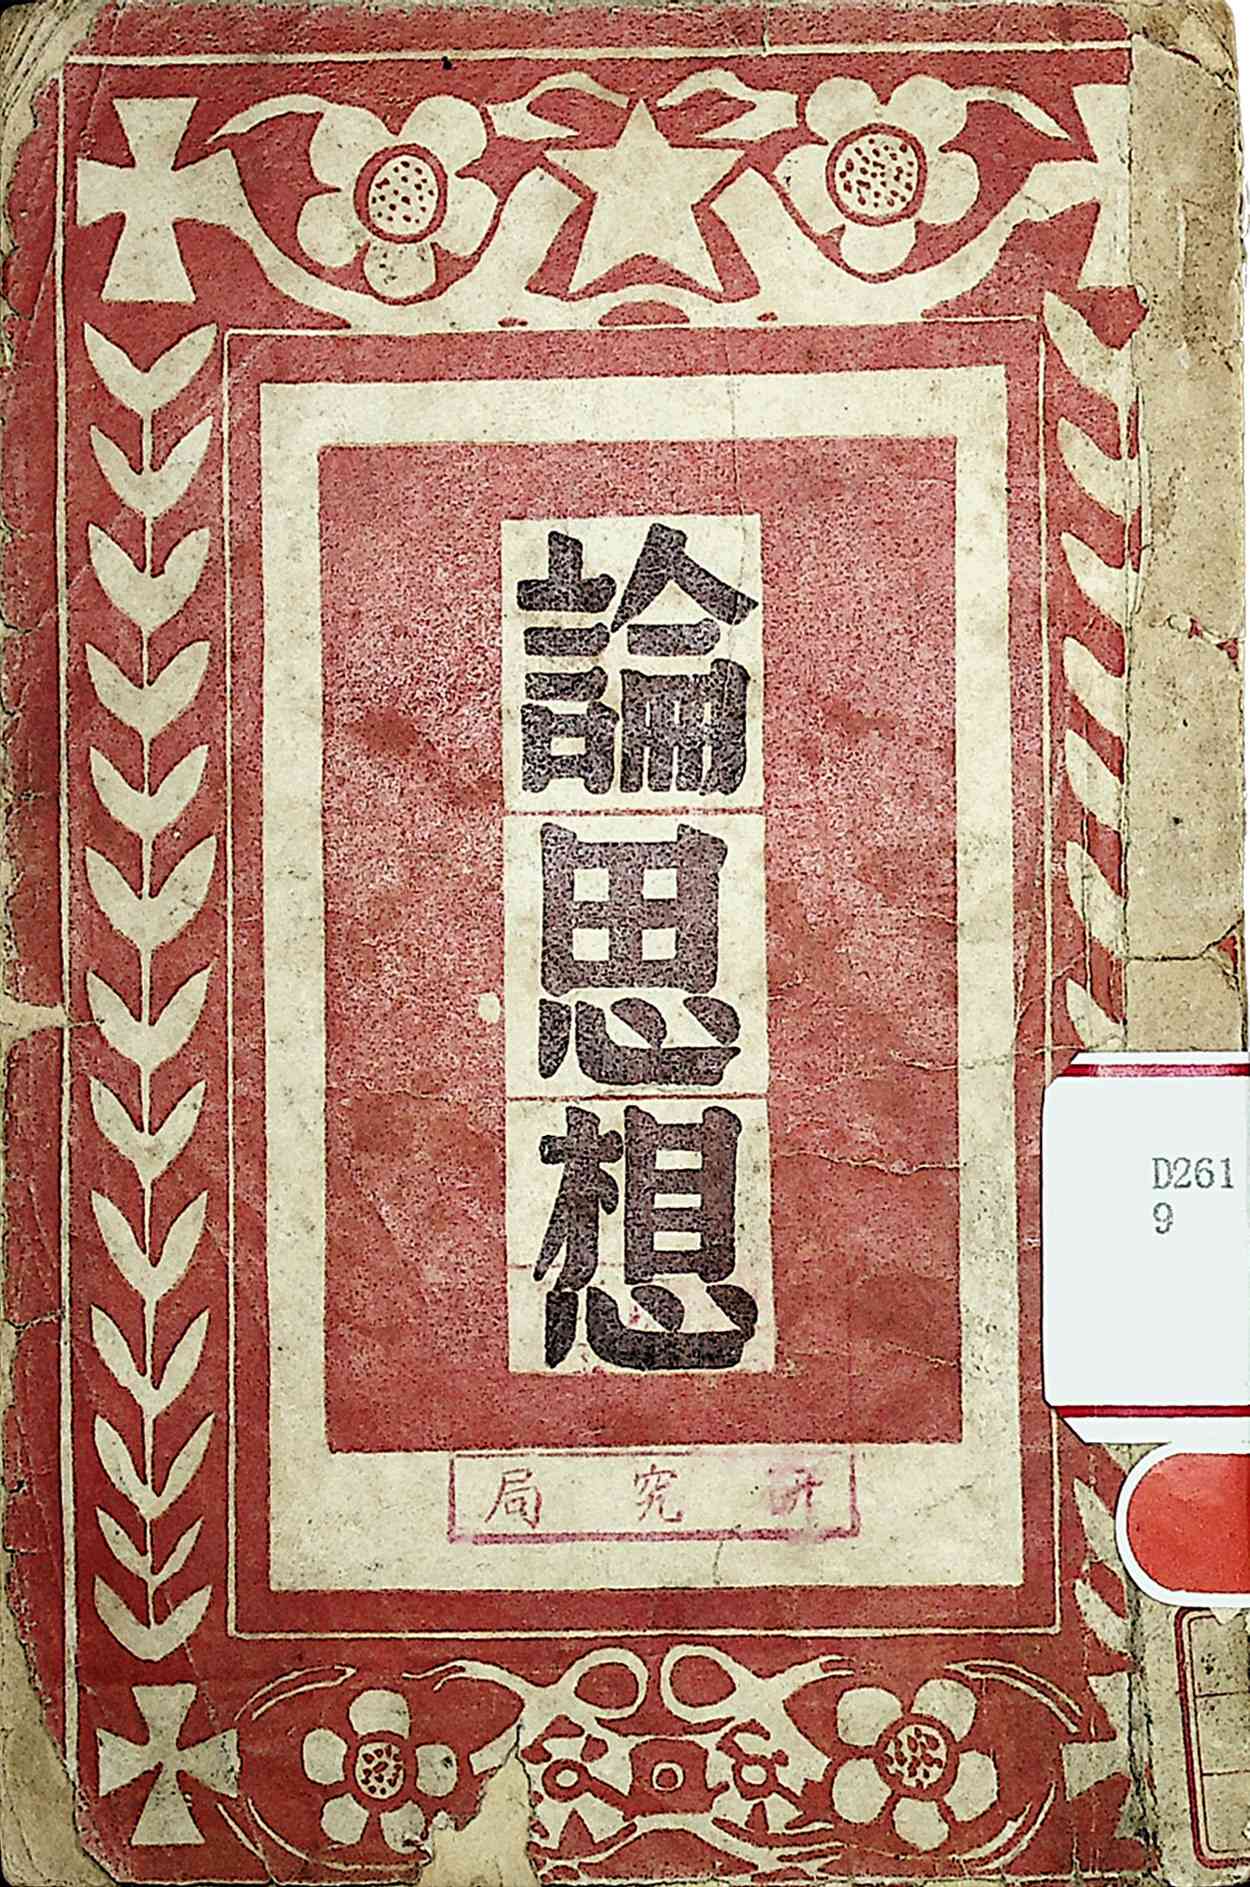 論思想
研究局
D261
9